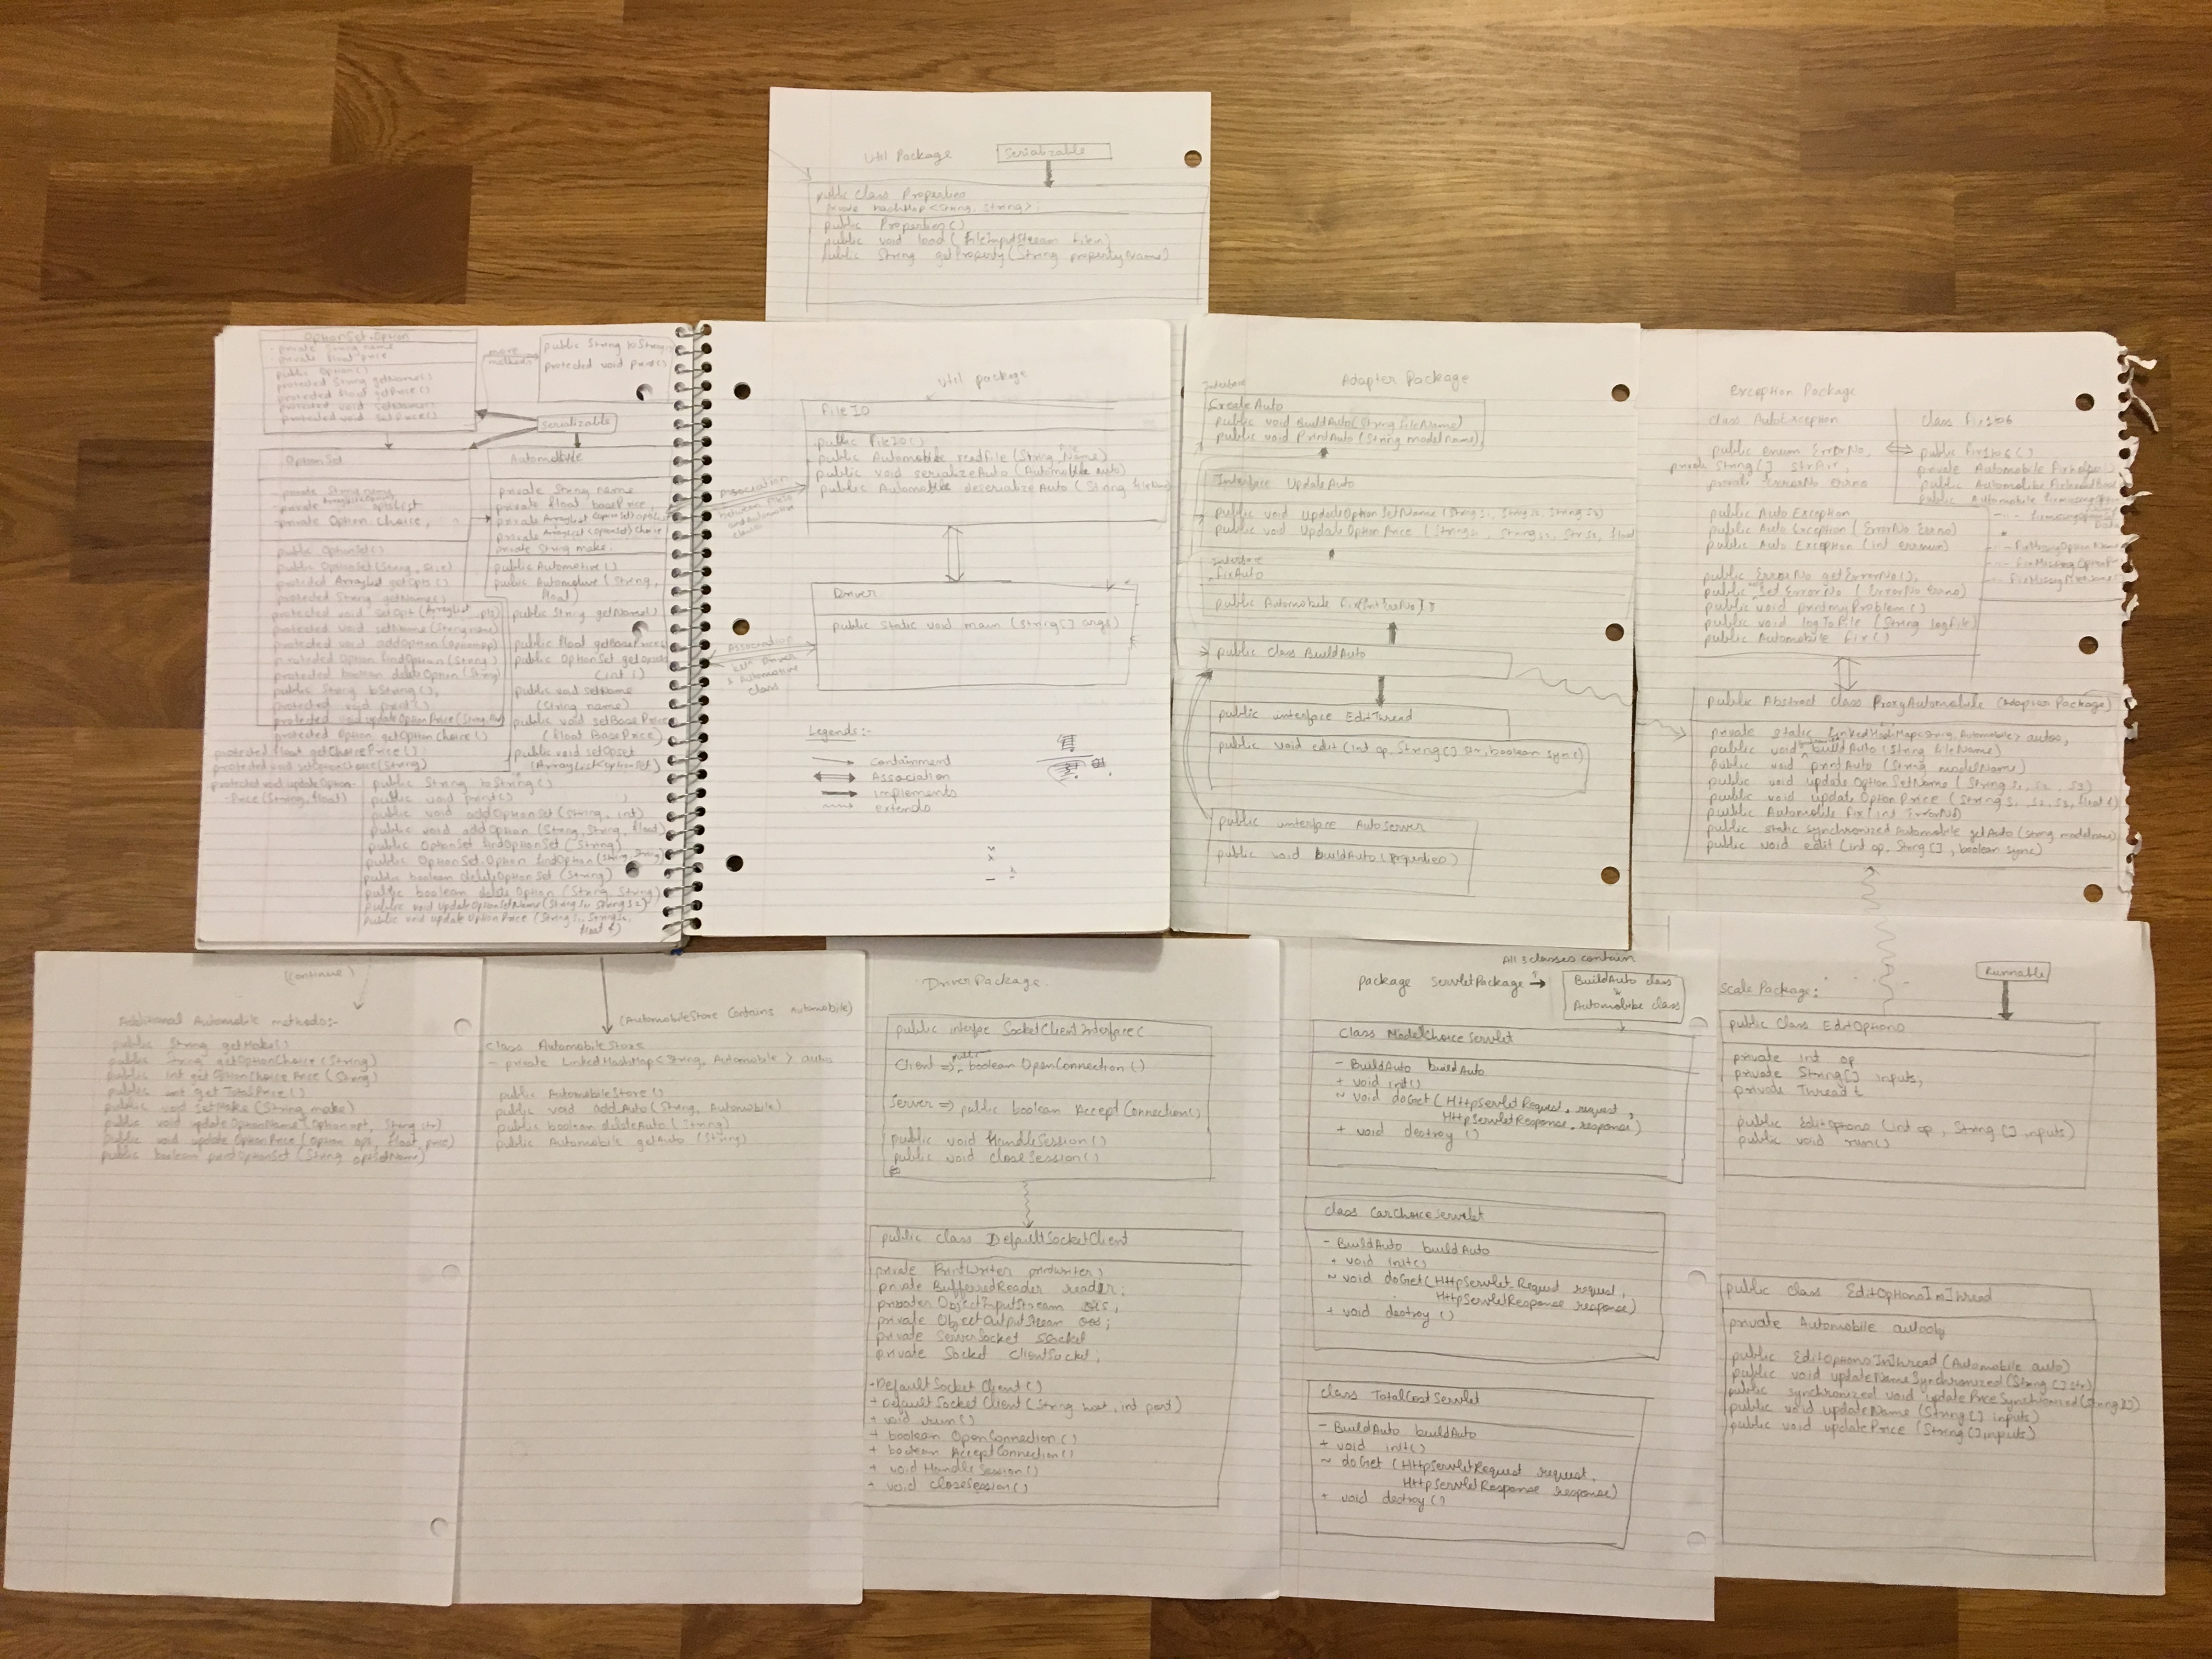 Util Package
Serializable
public class Properties
private HashMap<String, String>;
public Properties()
public void load(FileInputStream filein)
public String getProperty(String propertyName)
OptionSet.Option
- private String name
private float price
public Option()
protected String getName()
protected float getPrice()
protected void setName()
protected void setPrice()
more methods
public String toString()
protected void print()
Serializable
OptionSet
- private String name
private Option Choice,
public OptionSet()
public OptionSet(String, size)
protected ArrayList getOpts()
protected String getName()
protected void setOpt(ArrayList opts)
protected void setName(String name)
protected void addOption(Option op)
protected Option findOption(String)
protected boolean deleteOption(String)
public String toString(),
protected void print()
protected void updateOptionPrice(String,
protected Option getOptionChoice()
protected float getChoicePrice()
protected void setOptionChoice(String)
protected void updateOption-
-Price(String, float)
Automobile
private String name
private float basePrice,
private ArrayList<OptionSet> opts
private ArrayList<OptionSet> choice
private String make.
public Automotive()
public Automotive(String,
float)
public String getName()
public float getBasePrice
public OptionSet getOpset
(int i)
public void setName
(String name)
public void setBasePrice
(float BasePrice)
public void setOpset
(ArrayList<optionSet)
public String toString()
public void print()
public void addOptionSet(String, int)
public void addOption(String, String, float)
public OptionSet findOptionSet(String)
public OptionSet.Option findOption(String, String)
public boolean deleteOptionSet(String)
public boolean deleteOption(String, String)
public void updateOptionSetName(String s1, String s2)
Public void updateOptionPrice (String s1, String s2,
float f)
Util package
FileIO
public FileIO()
public Automobile readFile(String fileName)
public void serializeAuto(Automobile auto)
public Automobile deserializeAuto(String fileName
Association
between these
and Automotive
classes
Driver
public static void main (String[] args)
Association
betn Driver
& Automotive
class
Legends:-
Containment
Association
implements
extends
Adapter Package
Interface
CreateAuto
Public void BuildAuto(String fileName)
Public void PrintAuto(String modelName)
Interface UpdateAuto
Public void updateOptionSetName (String s1, String s2, String s3)
Public void updateOptionPrice (String s1, String s2, Str s3, float
interface
fixAuto
Public Automobile fix(int errNo);
public class BuildAuto
public interface EditThread
public void edit(int op, String[] str, boolean sync)
public interface AutoServer
public void buildAuto(properties)
Exception Package
class AutoException
public enum ErrorNo,
private String[] strArr,
private ErrorNo errno
public Auto Exception
public Auto Exception(ErrorNo errno)
public Auto Exception (int errnum)
public ErrorNo getErrorNo(),
public setErrorNo (ErrorNo errno)
public void printmyProblem()
public void logToFile (String logfile)
public Automobile fix()
class Fix1to6
public Fix1to6()
private Automobile FixHelper()
public Automobile
public Automobile
--- FixMissingOptionName
--- FixMissingOptionP
public Abstract class ProxyAutomobile (Adapter Package)
private static LinkedHashMap<String, Automobile> autos,
public void buildAuto (String fileName)
public void printAuto (String modelName)
public void updateOptionSetName (String s1, s2, s3)
public void updateOptionPrice (String s1, s2, s3, float f)
public Automobile fix(int errorNo)
public static synchronized Automobile getAuto(String modelname)
public void edit (int op, String[], boolean sync)
(continue)
Additional Automobile methods:-
public String getMake()
public String getOptionChoice(String)
public int getOptionChoicePrice(String)
public int getTotalPrice()
public void setMake(String make)
public void updateOptionName(Option opt, String str)
public void updateOptionPrice(Option opt, float price)
public boolean printOptionSet (String optsetName)
(AutomobileStore Contains Automobile)
class AutomobileStore
- private LinkedHashMap<String, Automobile> autos
public AutomobileStore()
public void addAuto(String, Automobile)
public boolean deleteAuto(String)
public Automobile getAuto (String)
Driver Package
public interface SocketClientInterface{
Client => public boolean OpenConnection()
Server => public boolean AcceptConnection()
public void HandleSession()
public void closeSession()
public class DefaultSocketClient
private PrintWriter printwriter;
private BufferedReader reader;
private ObjectInputStream ois,
private ObjectOutputStream oos;
private ServerSocket ssocket
private Socket ClientSocket;
-DefaultSocketClient()
+ DefaultSocketClient(String host, int port)
+ void run()
+ boolean OpenConnection()
+ boolean AcceptConnection()
+ void HandleSession()
+ void closeSession()
All 3 classes contain
package ServletPackage
BuildAuto class
Automobile class
class ModelChoiceServlet
- BuildAuto buildAuto
+ void init()
~ void doGet(HttpServletRequest request,
HttpServletResponse response)
+ void destroy()
class CarChoiceServlet
- BuildAuto buildAuto
+ void init()
~ void doGet(HttpServletRequest request,
HttpServletResponse response)
+ void destroy()
class TotalCostServlet
- BuildAuto buildAuto
+ void init()
~ doGet (HttpServletRequest request,
HttpServletResponse response)
+ void destroy()
Scale Package:
Runnable
public Class EditOptions
private int op
private String[] inputs,
private Thread t
public EditOptions (int op, String[] inputs)
public void run()
public class EditOptionsInThread
private Automobile autoobj
public EditOptionsInThread(Automobile auto)
public void updateNameSynchronized(String[] str)
public synchronized void updatePriceSynchronized(String[])
public void updateName (String[] inputs)
public void updatePrice (String[] inputs)